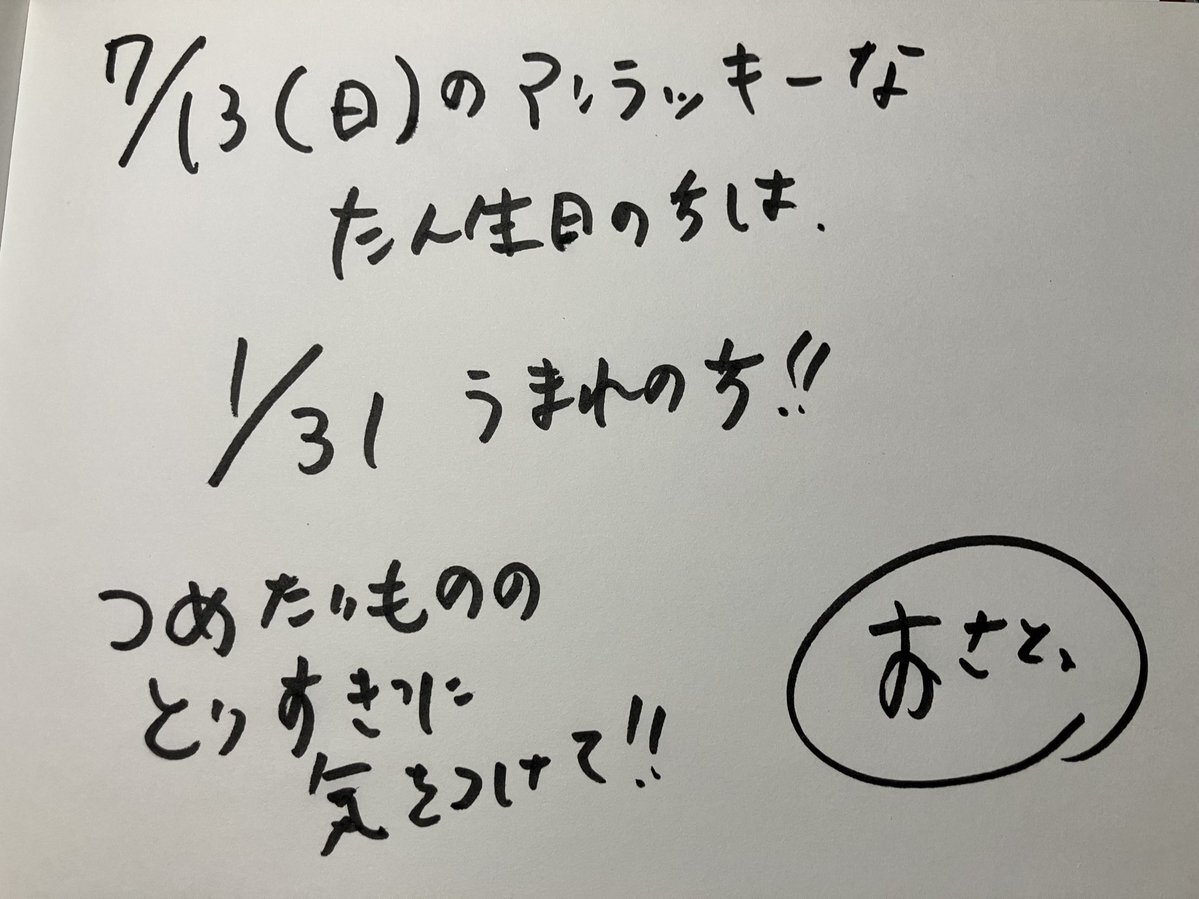 7/13(日)のアンラッキーな
たん生日のちしは、
1/31 うまれのち!!
つめたいものの
とりすぎに
気をつけて!!
おさと、